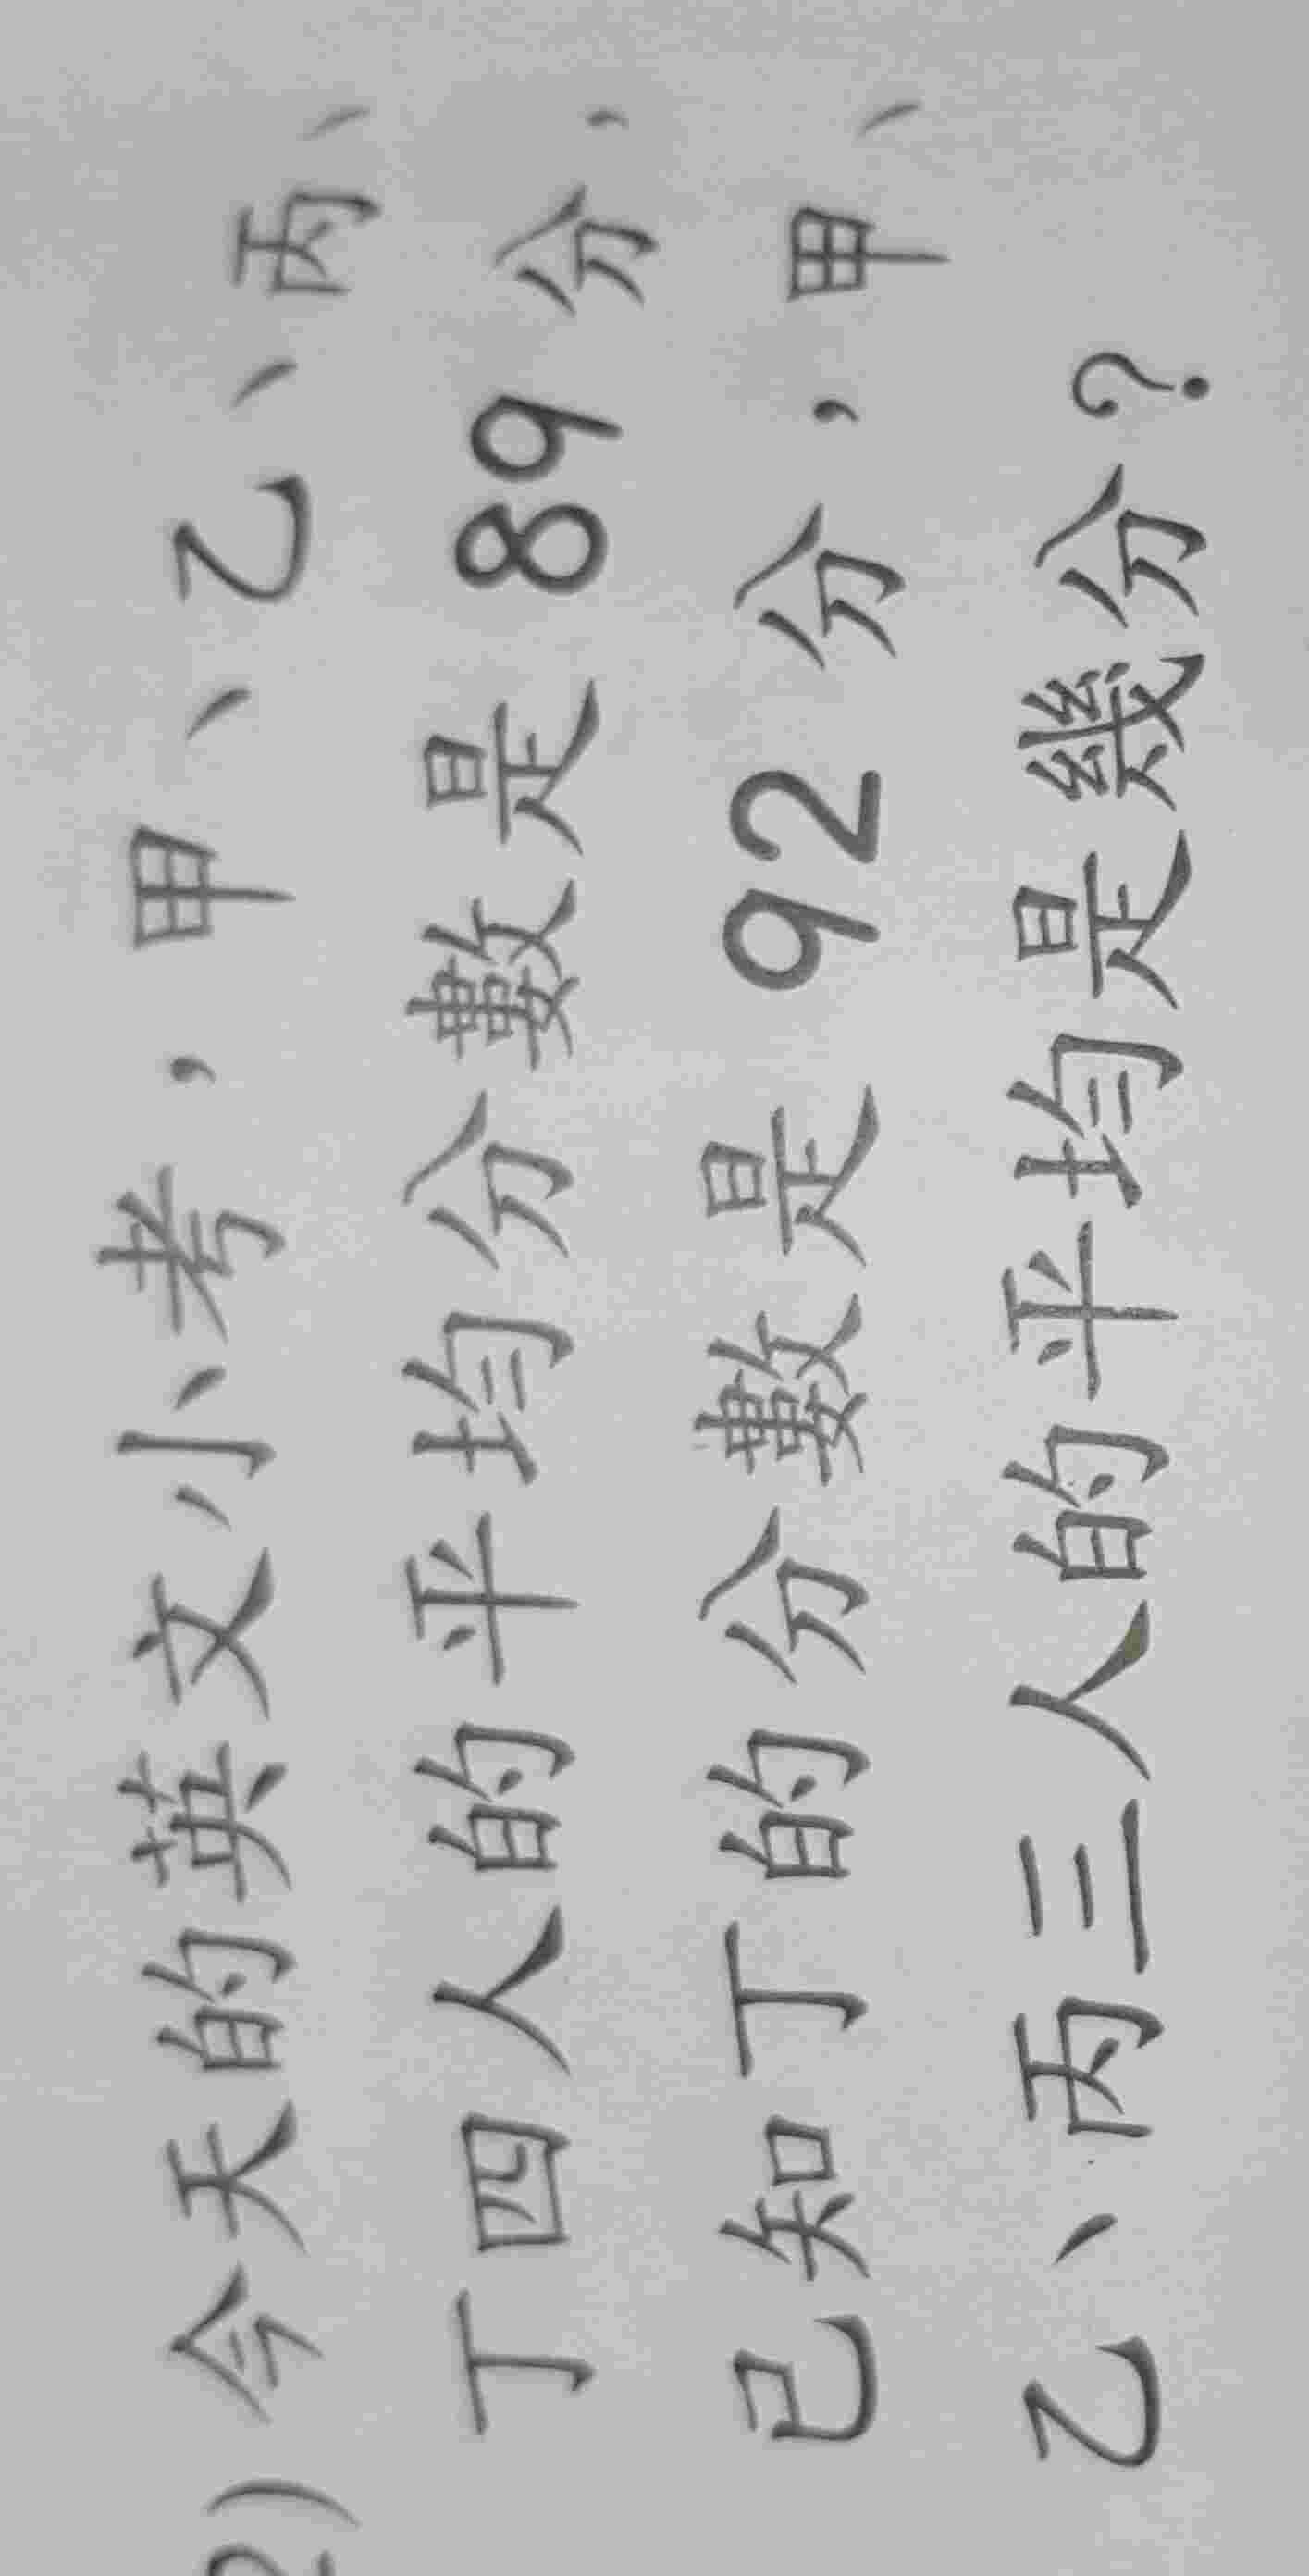 2) 今天的英文小考，甲、乙、丙、
丁四人的平均分數是 89 分，
已知丁的分數是 92 分，甲、
乙、丙三人的平均是幾分？